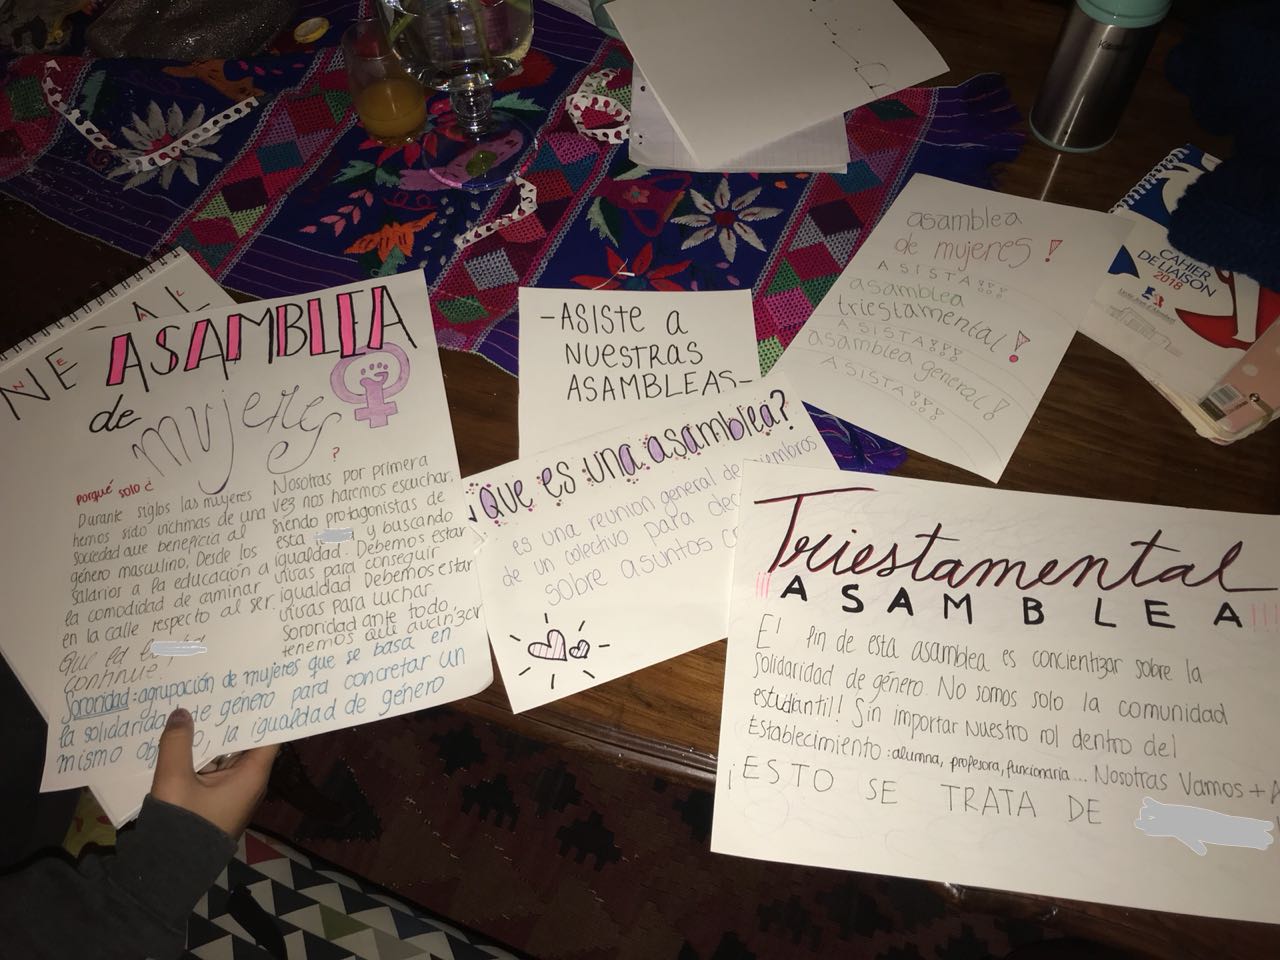 ASAMBLEA
de mujeres
porqué solo ¿ ?
Durante siglos las mujeres
hemos sido víctimas de una
sociedad que beneficia al
género masculino, Desde los
salarios a la educación a
la comodidad de caminar
en la calle respecto al ser.
Que la
continúe.
Nosotras por primera
vez nos haremos escuchar,
siendo protagonistas de
esta y buscando
igualdad. Debemos estar
vivas para conseguir
igualdad Debemos estar
vivas para luchar.
Sororidad ante todo,
tenemos que
Sororidad: agrupación de mujeres que se basa en
la solidaridad de género para concretar un
mismo , la igualdad de género
-ASISTE A
NUESTRAS
ASAMBLEAS-
¿Que es una asamblea?
es una reunión general de miembros
de un colectivo para
sobre asuntos
asamblea
de mujeres!
ASISTA!!!
asamblea
triestamental!
ASISTA!!!
asamblea general!
ASISTA!!!
Triestamental
ASAMBLEA
El fin de esta asamblea es concientizar sobre la
solidaridad de género. No somos solo la comunidad
estudiantil! Sin importar nuestro rol dentro del
Establecimiento: alumna, profesora, funcionaria... Nosotras Vamos +
¡ESTO SE TRATA DE
CAHIER
DE LIAISON
2018